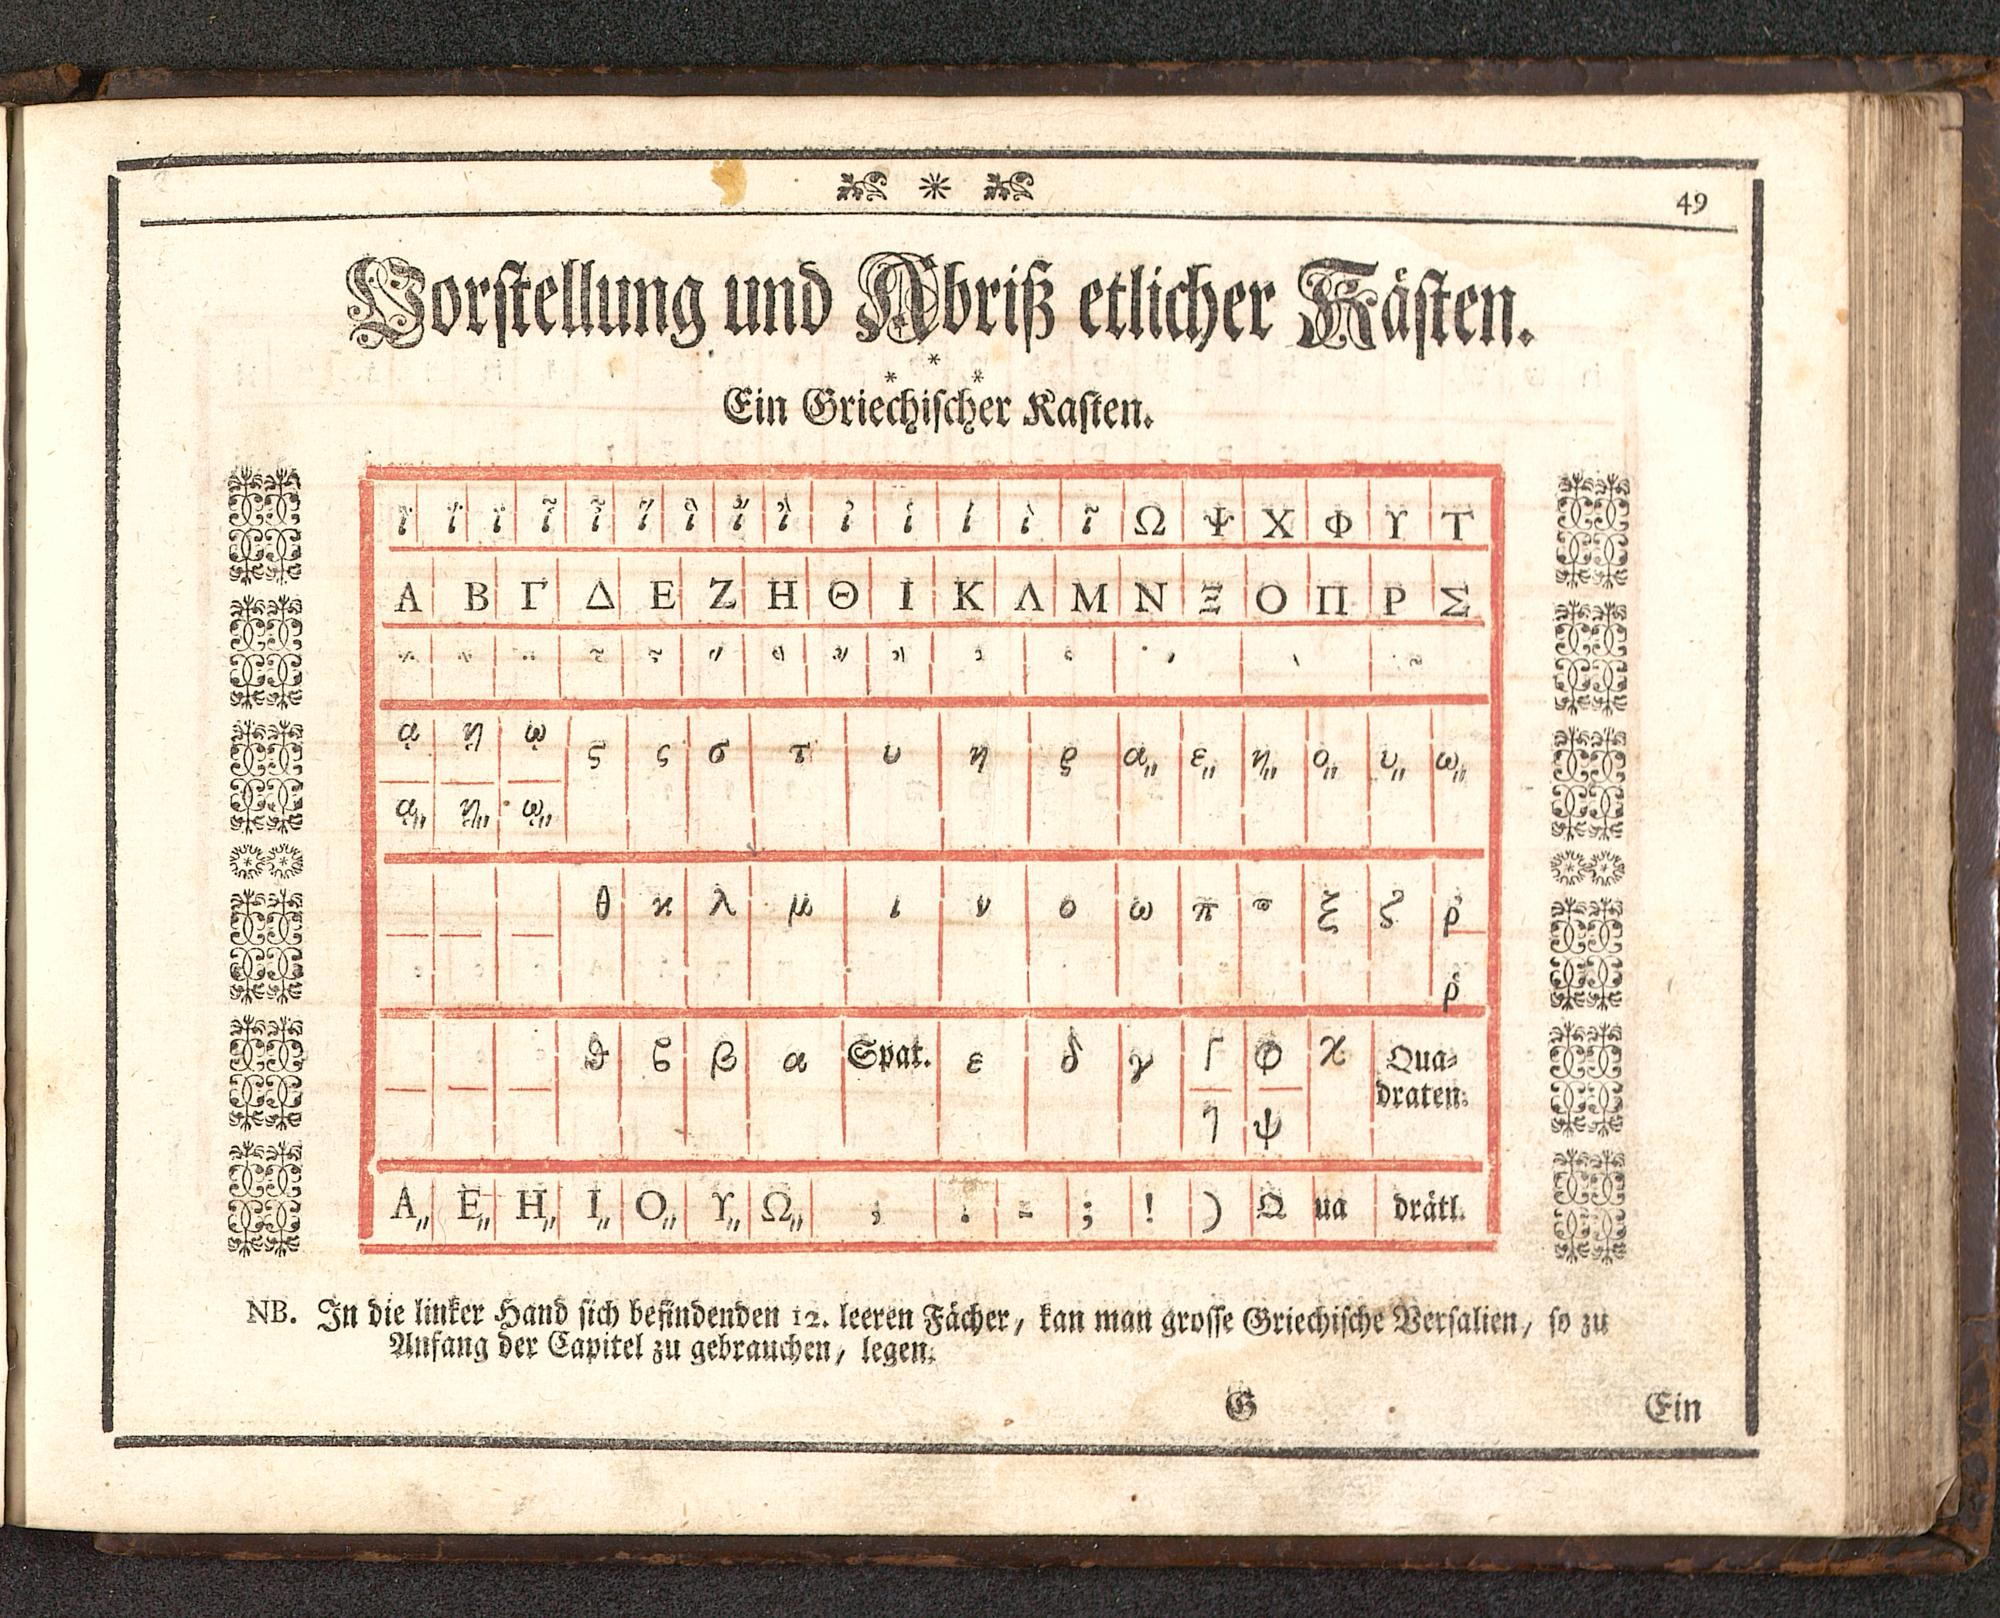 49
Vorſtellung und Abriß etlicher Käſten.
Ein Griechiſcher Kaſten.
Ω Ψ Χ Φ Υ Τ
Α Β Γ Δ Ε Ζ Η Θ Ι Κ Λ Μ Ν Ξ Ο Π Ρ Σ
ᾳ ῃ ῳ ς σ τ υ η α,, ε,, η,, ο,, υ,, ω,,
ᾳ,, ῃ,, ῳ,,
θ κ λ μ ι ν ο ω π ξ ζ ῤ
ῥ
ϑ β α Spat. ε δ γ φ χ Qua⸗
draten.
ψ
Α,, Ε,, Η,, Ι,, Ο,, Υ,, Ω,, , . ⸗ ; ! ) Q ua drätl.
NB. In die linker Hand ſich befindenden 12. leeren Fächer, kan man groſſe Griechiſche Verſalien, ſo zu
Anfang der Capitel zu gebrauchen, legen.
G Ein